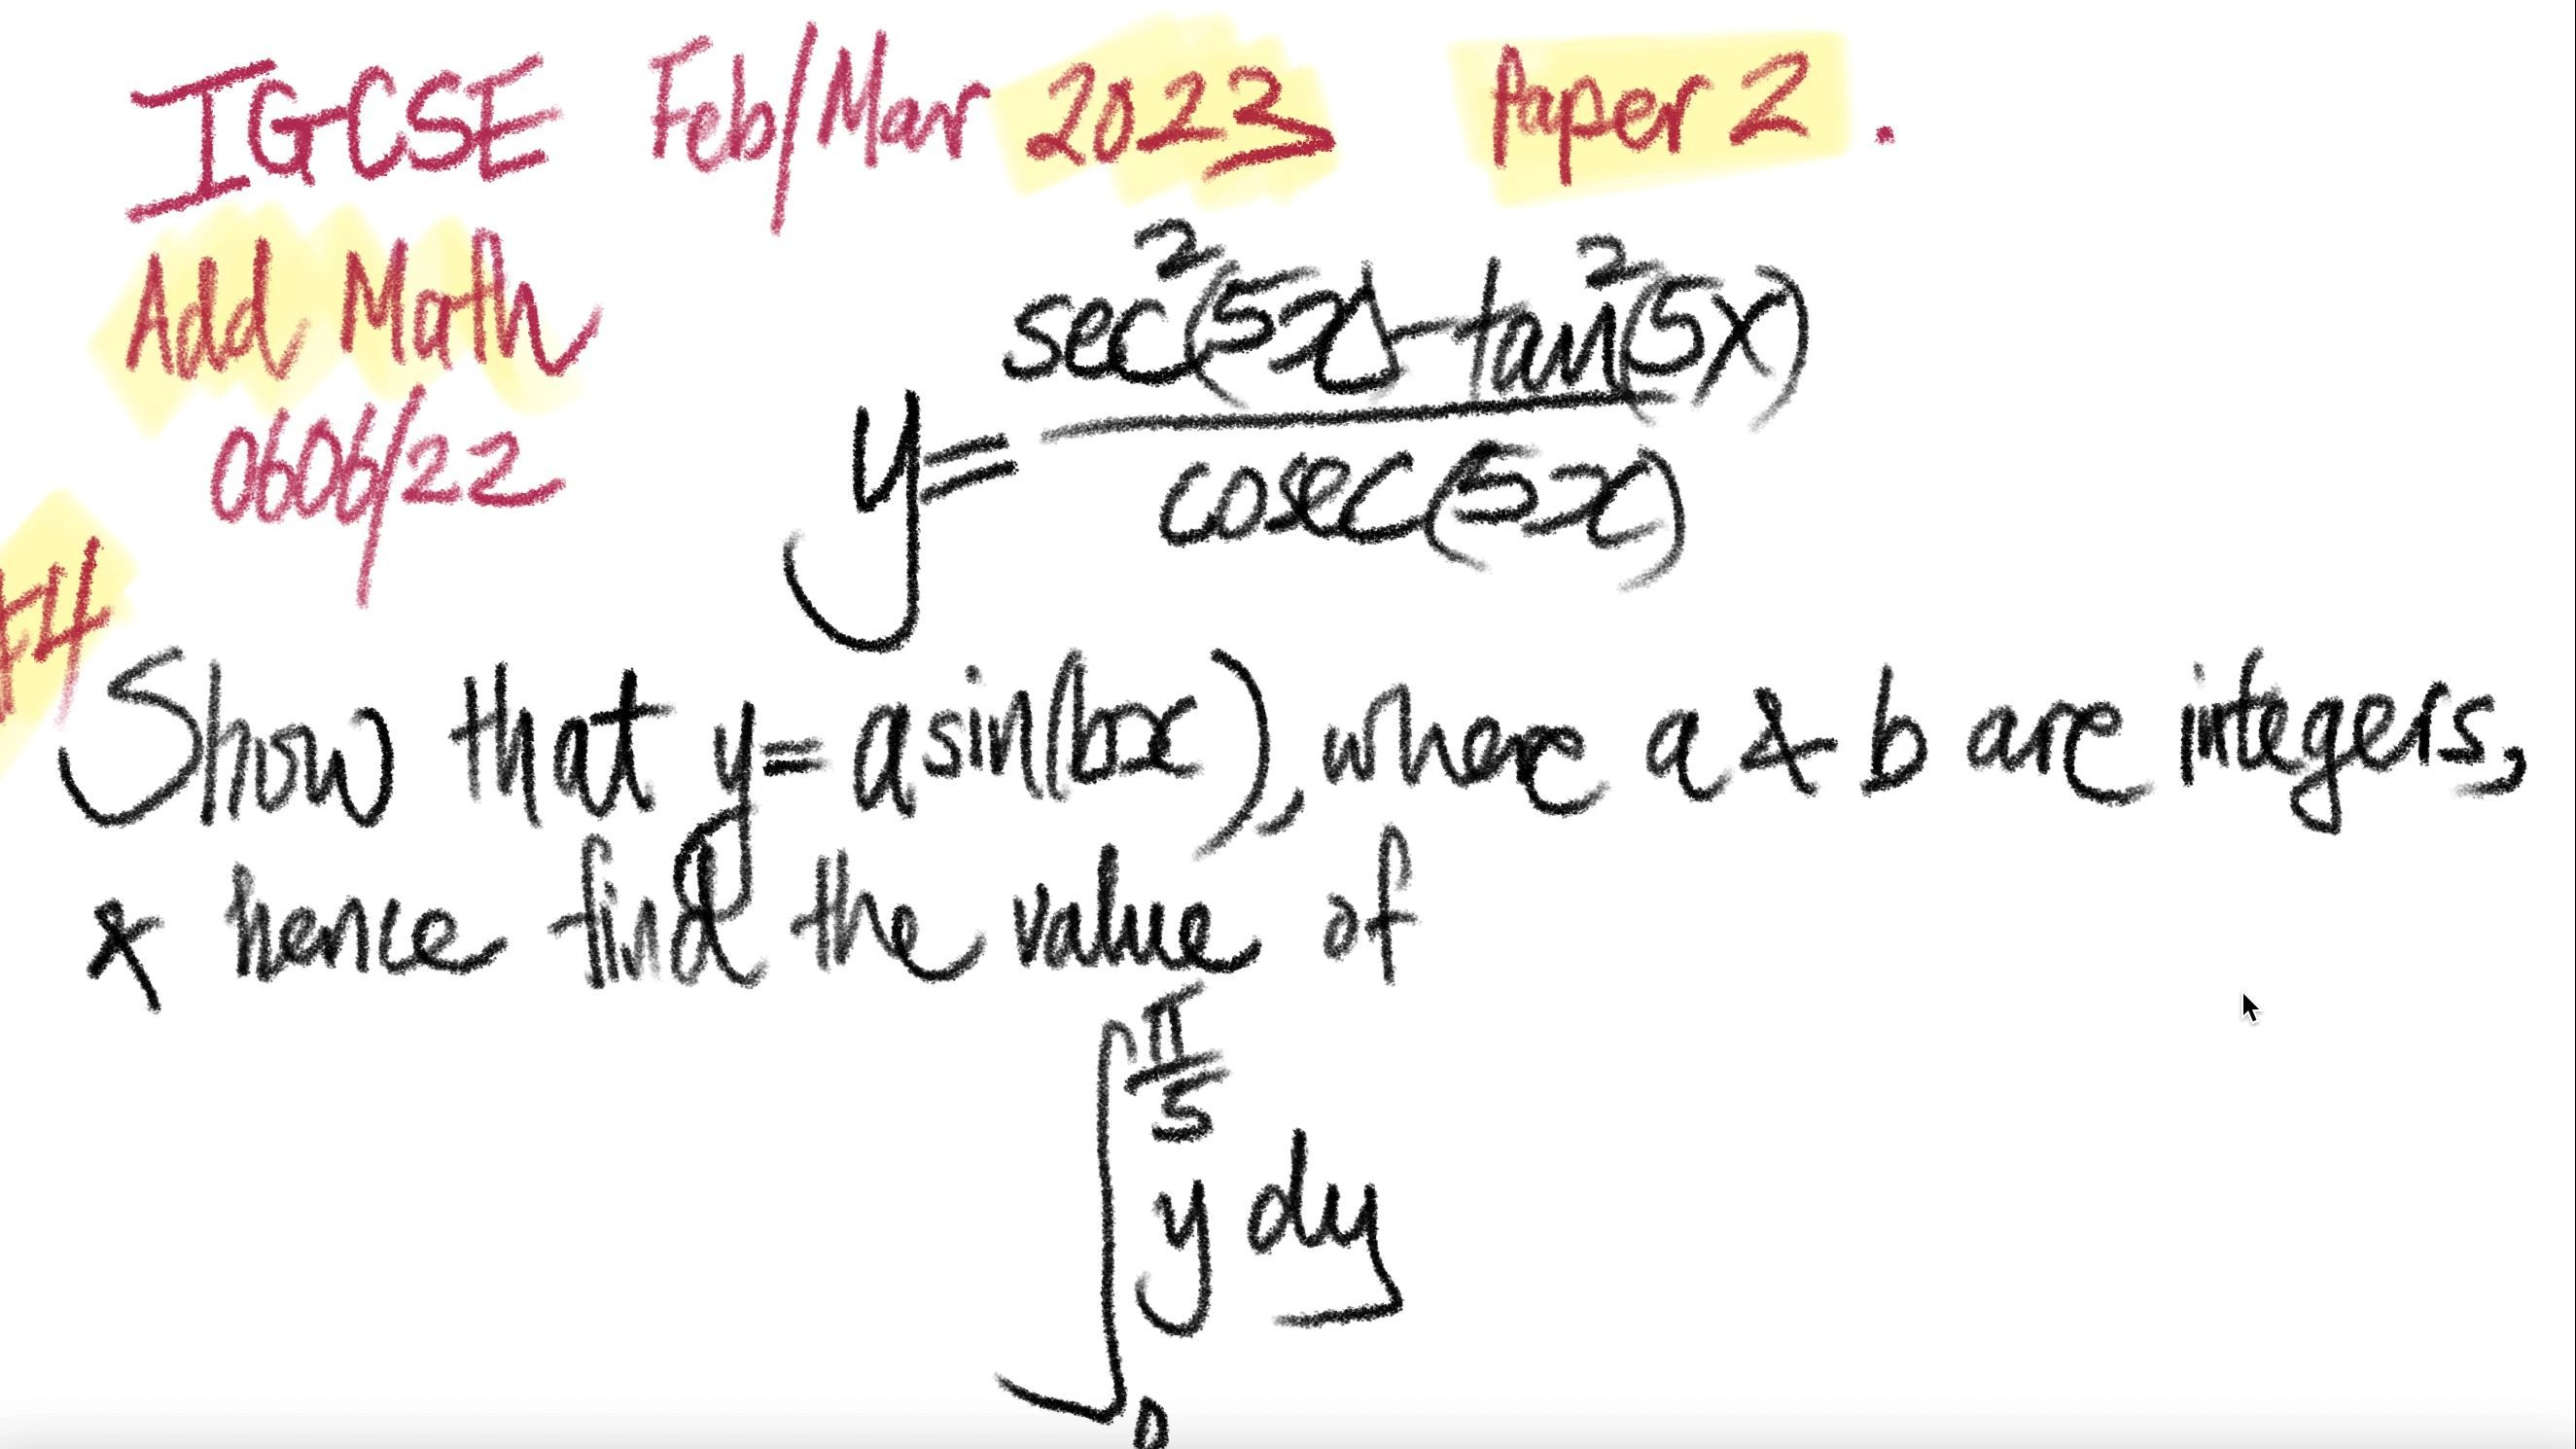 IGCSE Feb/Mar 2023 Paper 2.
Add Math
0606/22
y = (sec²(5x) - tan²(5x)) / cosec(5x)
Show that y = a sin(bx), where a & b are integers,
& hence find the value of
∫₀^(π/5) y dy